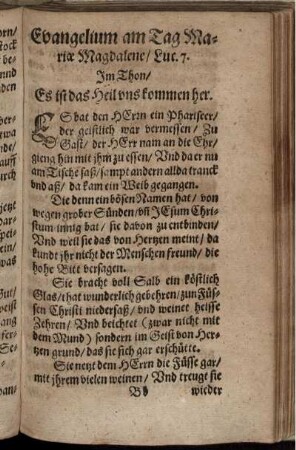 Evangelium am Tag Ma-
riæ Magdalene/ Luc. 7.
Im Thon/
Es ist das Heil vns kommen her.
ES bat den HErrn ein Phariseer/
der geistlich war vermessen/ Zu
Gast/ der HErr nam an die Ehr/
gieng hin mit jhm zu essen/ Vnd da er nu
am Tische saß/ sampt andern allda tranck
vnd aß/ da kam ein Weib gegangen.
Die denn ein bösen Namen hat/ von
wegen grober Sünden/ vñ JEsum Chri-
stum innig bat/ sie davon zu entbinden/
Vnd weil sie das von Hertzen meint/ da
kundt jhr nicht der Menschen freund/ die
hohe Bitt versagen.
Sie bracht voll Salb ein köstlich
Glas/ that wunderlich gebehren/ zun Füs-
sen Christi niedersaß/ vnd weinet heisse
Zehren/ Vnd beichtet (zwar nicht mit
dem Mund) sondern im Geist von Her-
tzen grund/ das sie sich gar erschütte.
Sie netzt dem HErrn die Füsse gar/
mit jhrem vielen weinen/ Vnd treugt sie
wieder